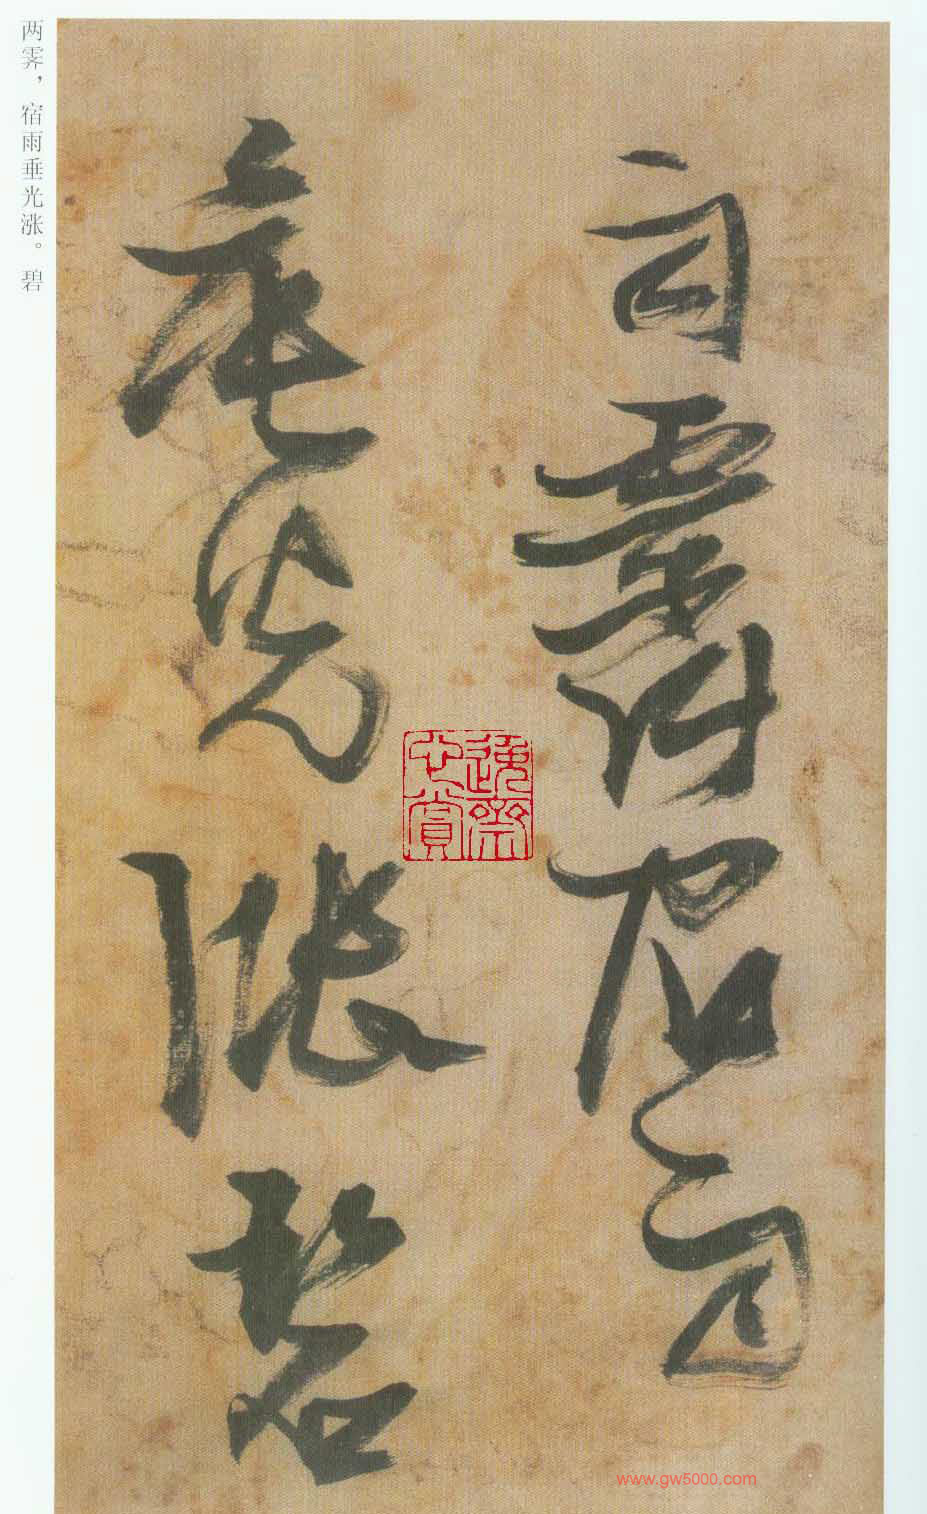 雨霽宿雨
垂光漲碧
两霁，宿雨垂光涨。碧
www.gw5000.com